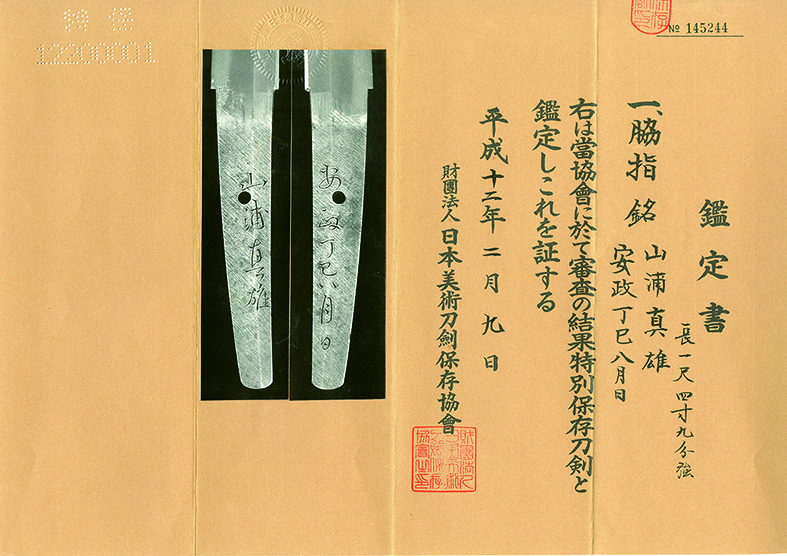 鑑定書
一、脇指 銘 山浦真雄
安政丁巳八月日
長一尺四寸九分強
右は當協會に於て審査の結果特別保存刀剣と
鑑定しこれを証する
平成十二年二月九日
財團法人 日本美術刀劍保存協會
№ 145244
特保
12200001
安政丁巳八月日
山浦真雄